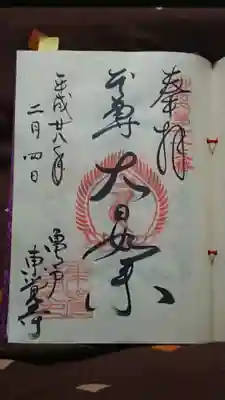 奉拝
本尊 大日如来
亀戸
東覚寺
平成廿八年
二月四日